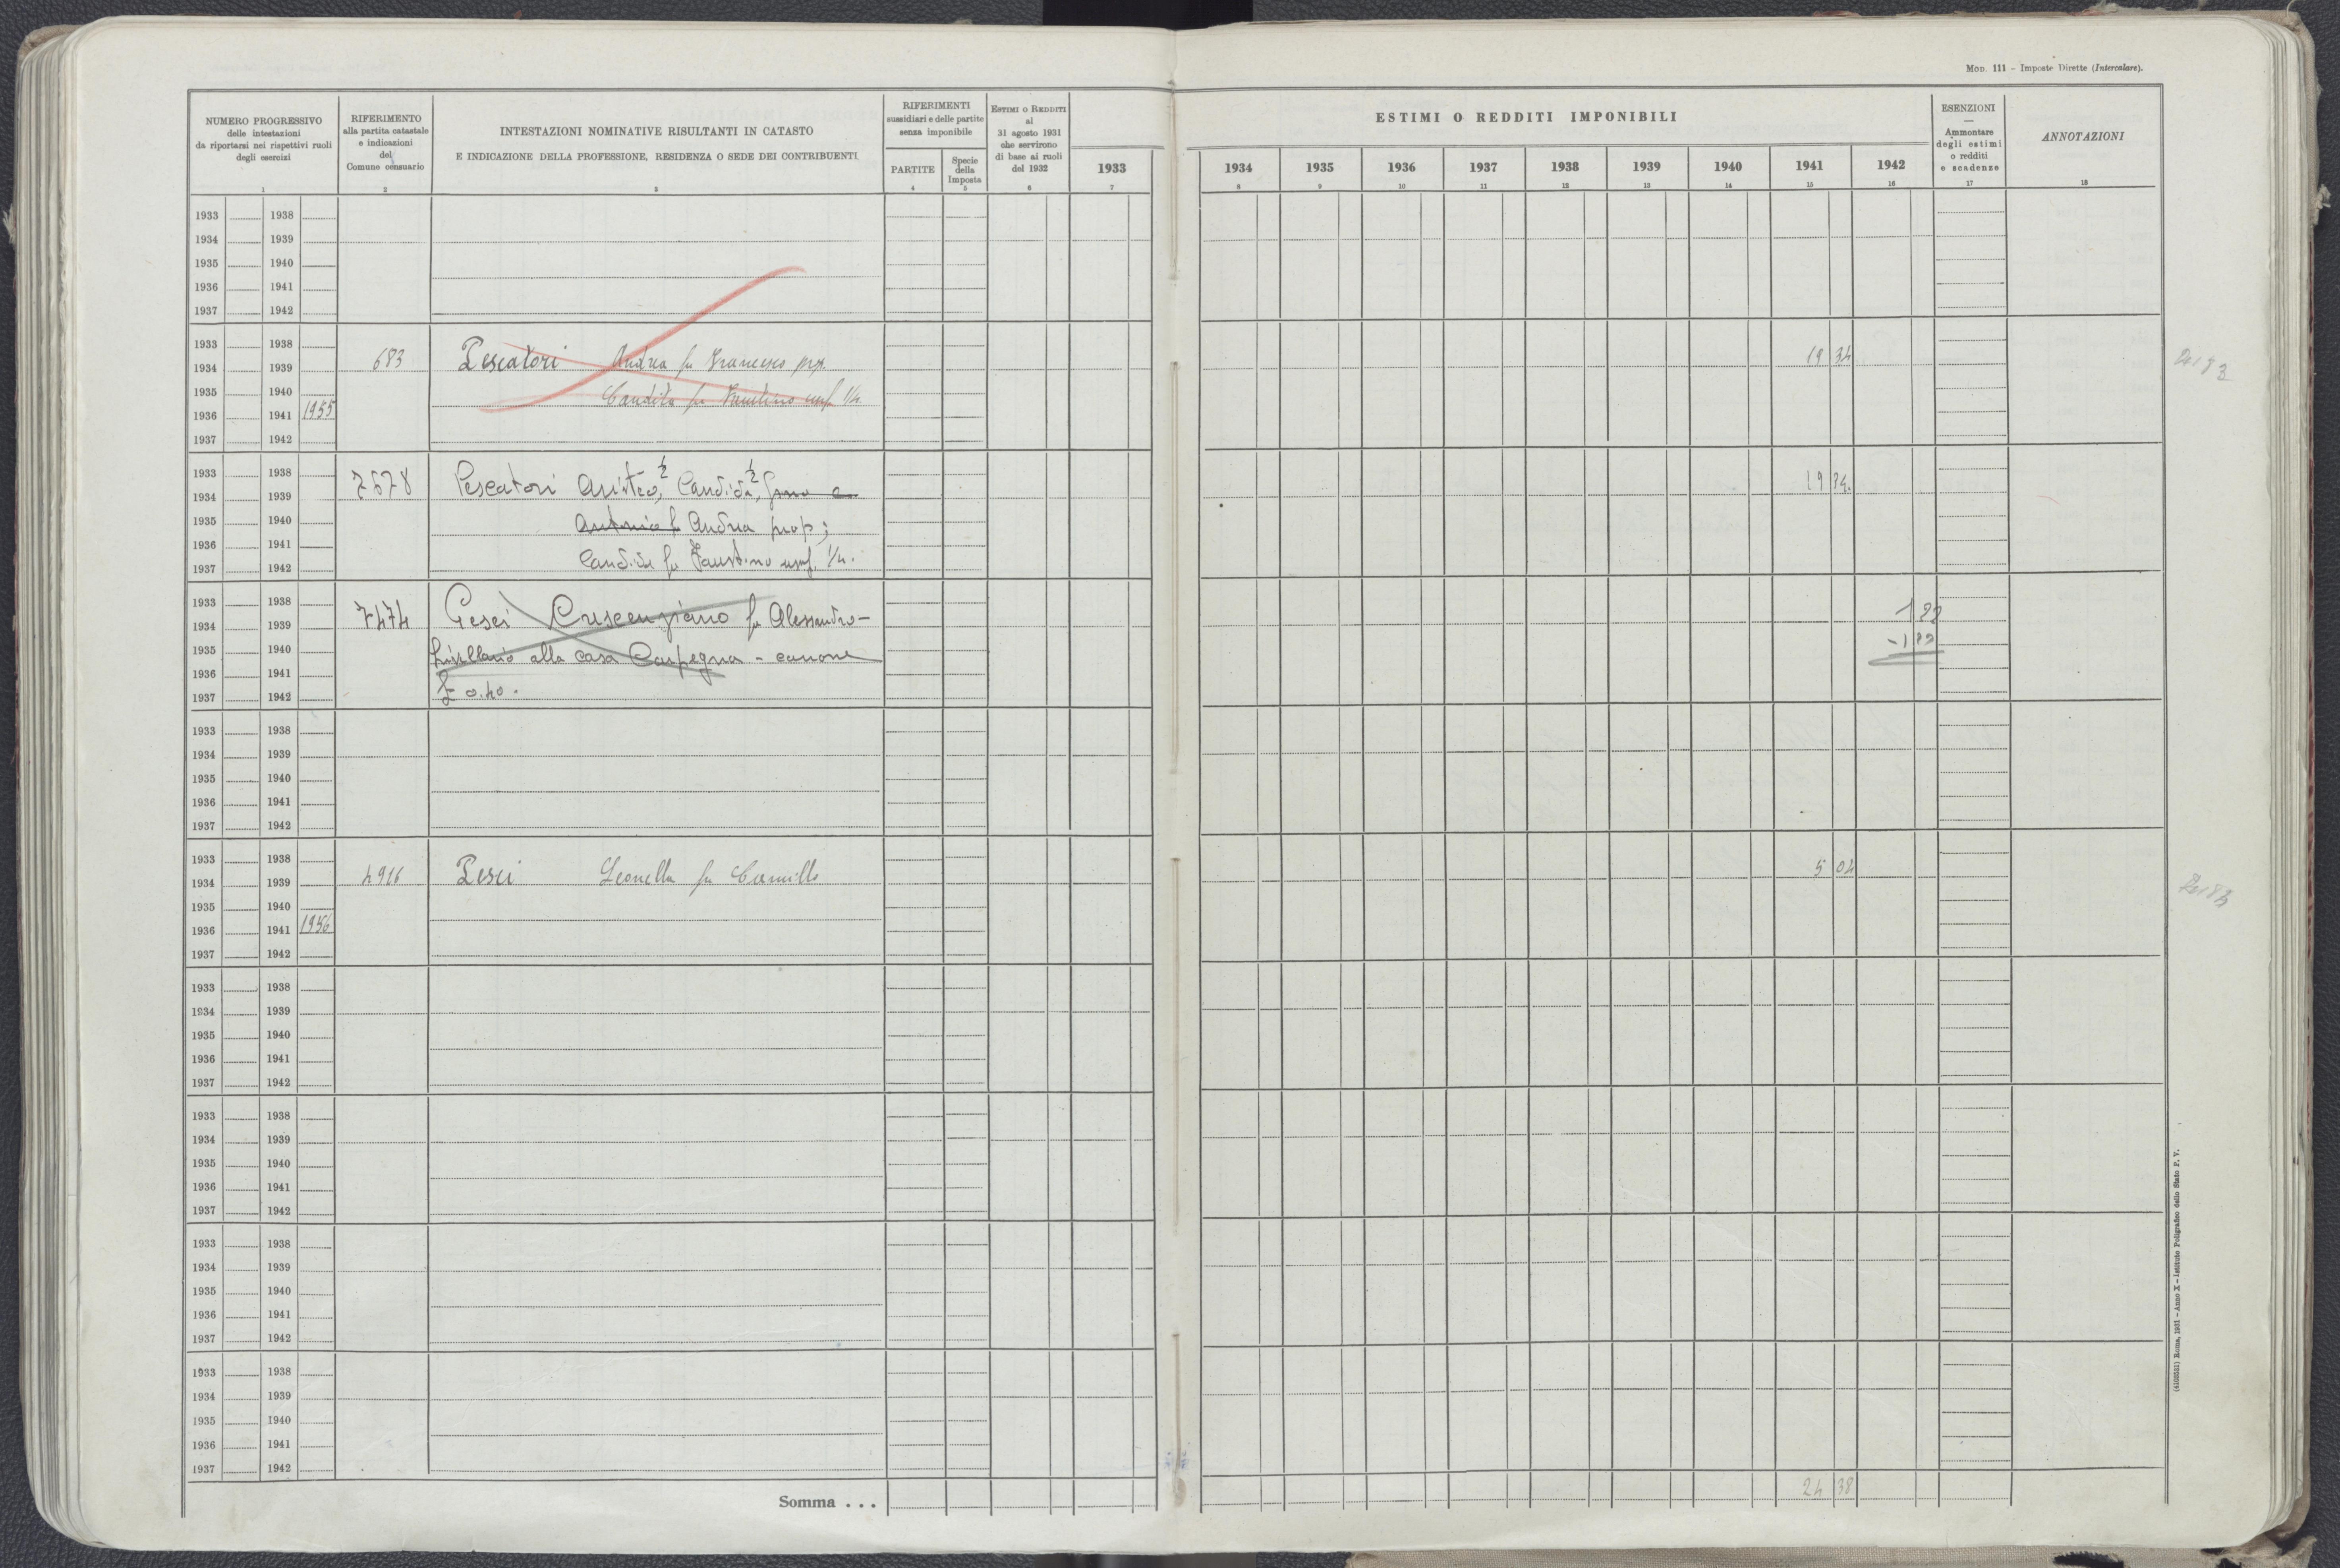 Mod. 111 - Imposte Dirette (Intercalare).
NUMERO PROGRESSIVO
delle intestazioni
da riportarsi nei rispettivi ruoli
degli esercizi
1
RIFERIMENTO
alla partita catastale
e indicazioni
del
Comune censuario
2
INTESTAZIONI NOMINATIVE RISULTANTI IN CATASTO
E INDICAZIONE DELLA PROFESSIONE, RESIDENZA O SEDE DEI CONTRIBUENTI
3
RIFERIMENTI
sussidiari e delle partite
senza imponibile
PARTITE
4
Specie
della
Imposta
5
Estimi o Redditi
al
31 agosto 1931
che servirono
di base ai ruoli
del 1932
6
1933
7
ESTIMI O REDDITI IMPONIBILI
1934 1935 1936 1937 1938 1939 1940 1941 1942
8 9 10 11 12 13 14 15 16
ESENZIONI
—
Ammontare
degli estimi
o redditi
e scadenze
17
ANNOTAZIONI
18
1933 1938
1934 1939
1935 1940
1936 1941
1937 1942
1933 1938
1934 1939 683 Pescatori Andrea fu Francesco prop. 19 34
1935 1940 Candida fu Faustino usuf. 1/4
1936 1941 1955
1937 1942
1933 1938 7578 Pescatori Aristeo, 1/2 Candida, 1/2 Gino e 19 34
1934 1939
1935 1940 Antonio fu Andrea prop;
1936 1941
1937 1942 Candida fu Faustino usuf. 1/4.
1933 1938
1934 1939 7474 Pesci Crescenziano fu Alessandro -
1935 1940 Livellario alla casa Carpegna - canone
1936 1941
1937 1942 £ 0.40.
1933 1938
1934 1939
1935 1940
1936 1941
1937 1942
1933 1938
1934 1939 4916 Pesci Leonella fu Camillo 5 04
1935 1940
1936 1941 1956
1937 1942
1933 1938
1934 1939
1935 1940
1936 1941
1937 1942
1933 1938
1934 1939
1935 1940
1936 1941
1937 1942
1933 1938
1934 1939
1935 1940
1936 1941
1937 1942
1933 1938
1934 1939
1935 1940
1936 1941
1937 1942
Somma . . . 24 38
(4103551) Roma, 1931 - Anno X - Istituto Poligrafico dello Stato P. V.